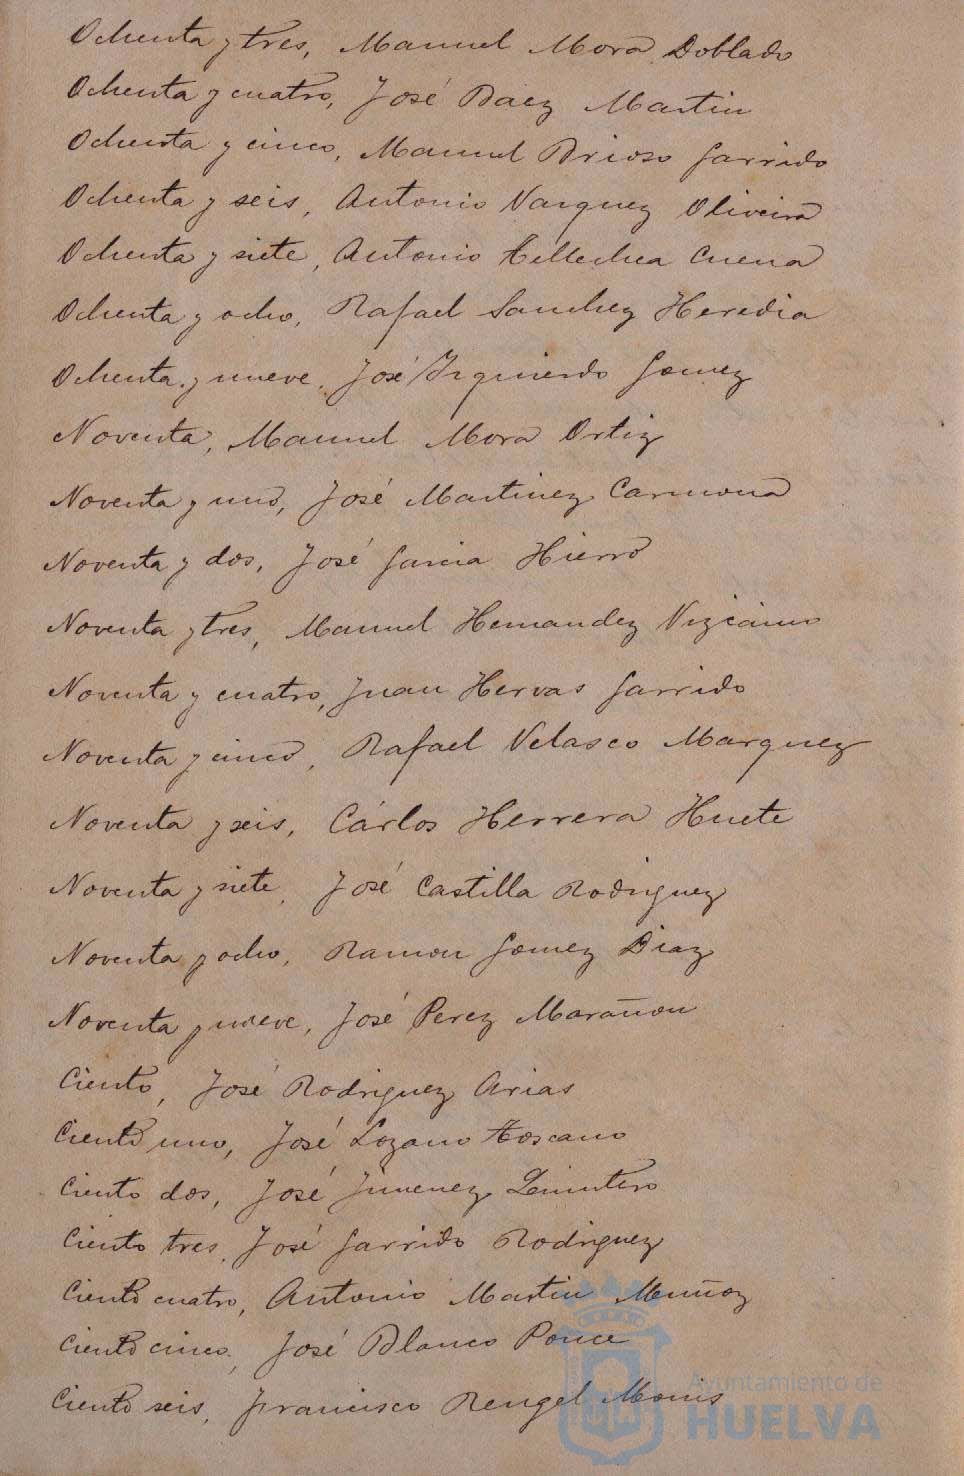 Ochenta y tres, Manuel Mora Doblado
Ochenta y cuatro, José Baez Martin
Ochenta y cinco, Manuel Brioso Garrido
Ochenta y seis, Antonio Vazquez Oliveira
Ochenta y siete, Antonio Tellechea Cuena
Ochenta y ocho, Rafael Sanchez Heredia
Ochenta y nueve, José Izquierdo Gomez
Noventa, Manuel Mora Ortiz
Noventa y uno, José Martinez Carmona
Noventa y dos, José Garcia Hierro
Noventa y tres, Manuel Hernandez Vizcaino
Noventa y cuatro, Juan Hervas Garrido
Noventa y cinco, Rafael Velasco Marquez
Noventa y seis, Cárlos Herrera Huete
Noventa y siete, José Castilla Rodriguez
Noventa y ocho, Ramon Gomez Diaz
Noventa y nueve, José Perez Marañon
Ciento, José Rodriguez Arias
Ciento uno, José Lozano Toscano
Ciento dos, José Jimenez Quintero
Ciento tres, José Garrido Rodriguez
Ciento cuatro, Antonio Martin Muñoz
Ciento cinco, José Blanco Ponce
Ciento seis, Francisco Rengel Monis
Ayuntamiento de
HUELVA